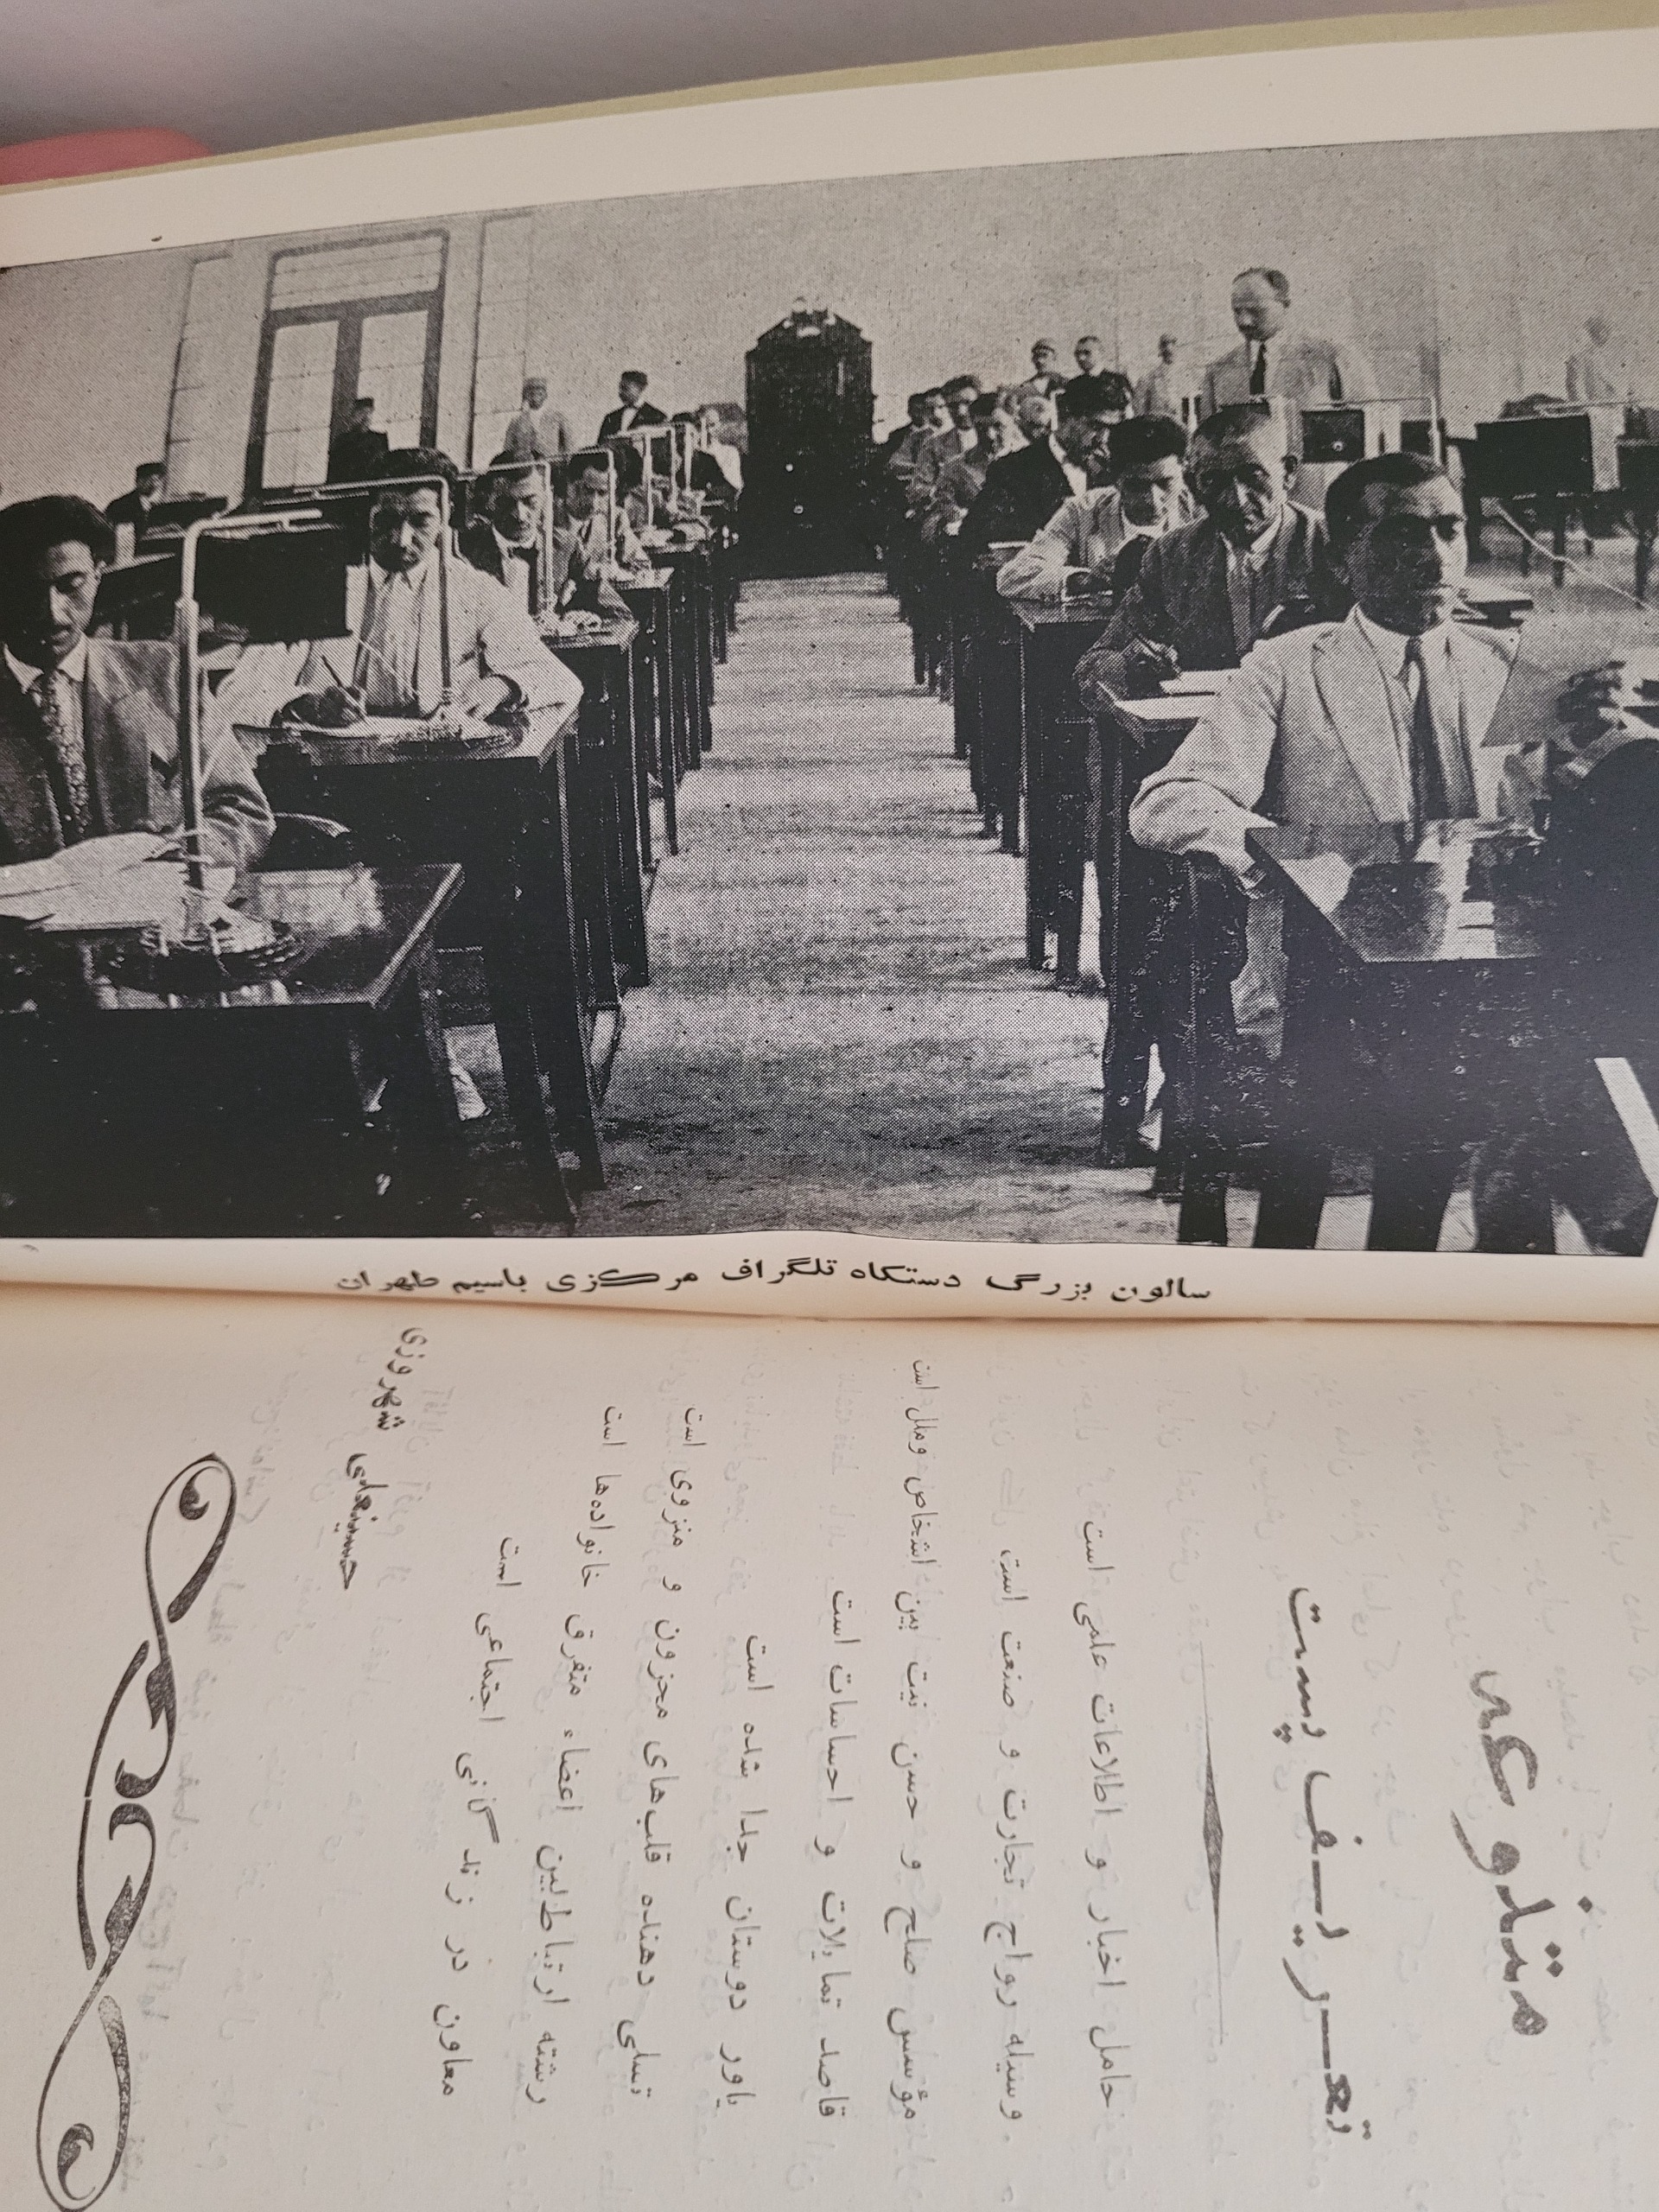 سالون بزرگ دستگاه تلگراف مرکزی باسیم طهران
متنوعه
تعریف پست
حامل اخبار و اطلاعات علمی است
وسیله رواج تجارت و صنعت است
مؤسس صلح و حسن نیت بین اشخاص و ملل است
قاصد تمایلات و احساسات است
یاور دوستان جدا شده است
تسلی دهنده قلب‌های محزون و منزوی است
رشته ارتباط بین اعضاء متفرق خانواده‌ها است
معاون در زندگانی اجتماعی است
حسینعلی شهروزی